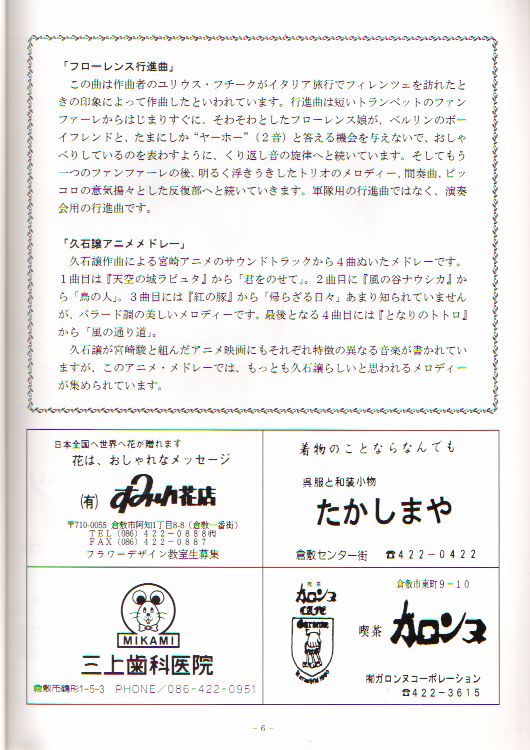 「フローレンス行進曲」
この曲は作曲者のユリウス・フチークがイタリア旅行でフィレンツェを訪れたと
きの印象によって作曲したといわれています。行進曲は短いトランペットのファン
ファーレからはじまりすぐに、そわそわとしたフローレンス娘が、ベルリンのボー
イフレンドと、たまにしか“ヤーホー”（２音）と答える機会を与えないで、おしゃ
べりしているのを表わすように、くり返し音の旋律へと続いています。そしてもう
一つのファンファーレの後、明るく浮きうきしたトリオのメロディー、間奏曲、ピッ
コロの意気揚々とした反復部へと続いていきます。軍隊用の行進曲ではなく、演奏
会用の行進曲です。
「久石譲アニメメドレー」
久石譲作曲による宮崎アニメのサウンドトラックから４曲ぬいたメドレーです。
１曲目は『天空の城ラピュタ』から「君をのせて」。２曲目に『風の谷ナウシカ』か
ら「鳥の人」。３曲目には『紅の豚』から「帰らざる日々」あまり知られていません
が、バラード調の美しいメロディーです。最後となる４曲目には『となりのトトロ』
から「風の通り道」。
久石譲が宮崎駿と組んだアニメ映画にもそれぞれ特徴の異なる音楽が書かれてい
ますが、このアニメ・メドレーでは、もっとも久石譲らしいと思われるメロディー
が集められています。
日本全国へ世界へ花が贈れます
花は、おしゃれなメッセージ
㈲ すみれ花店
〒710-0055 倉敷市阿知1丁目8-8（倉敷一番街）
TEL(086) 422-0888㈹
FAX(086) 422-0887
フラワーデザイン教室生募集
着物のことならなんでも
呉服と和装小物
たかしまや
倉敷センター街 ☎422-0422
MIKAMI
三上歯科医院
倉敷市鶴形1-5-3 PHONE／086-422-0951
喫茶
ガロンヌ
CAFE
Garonne
倉敷市東町９−１０
喫茶 ガロンヌ
㈲ガロンヌコーポレーション
☎422-3615
− 6 −